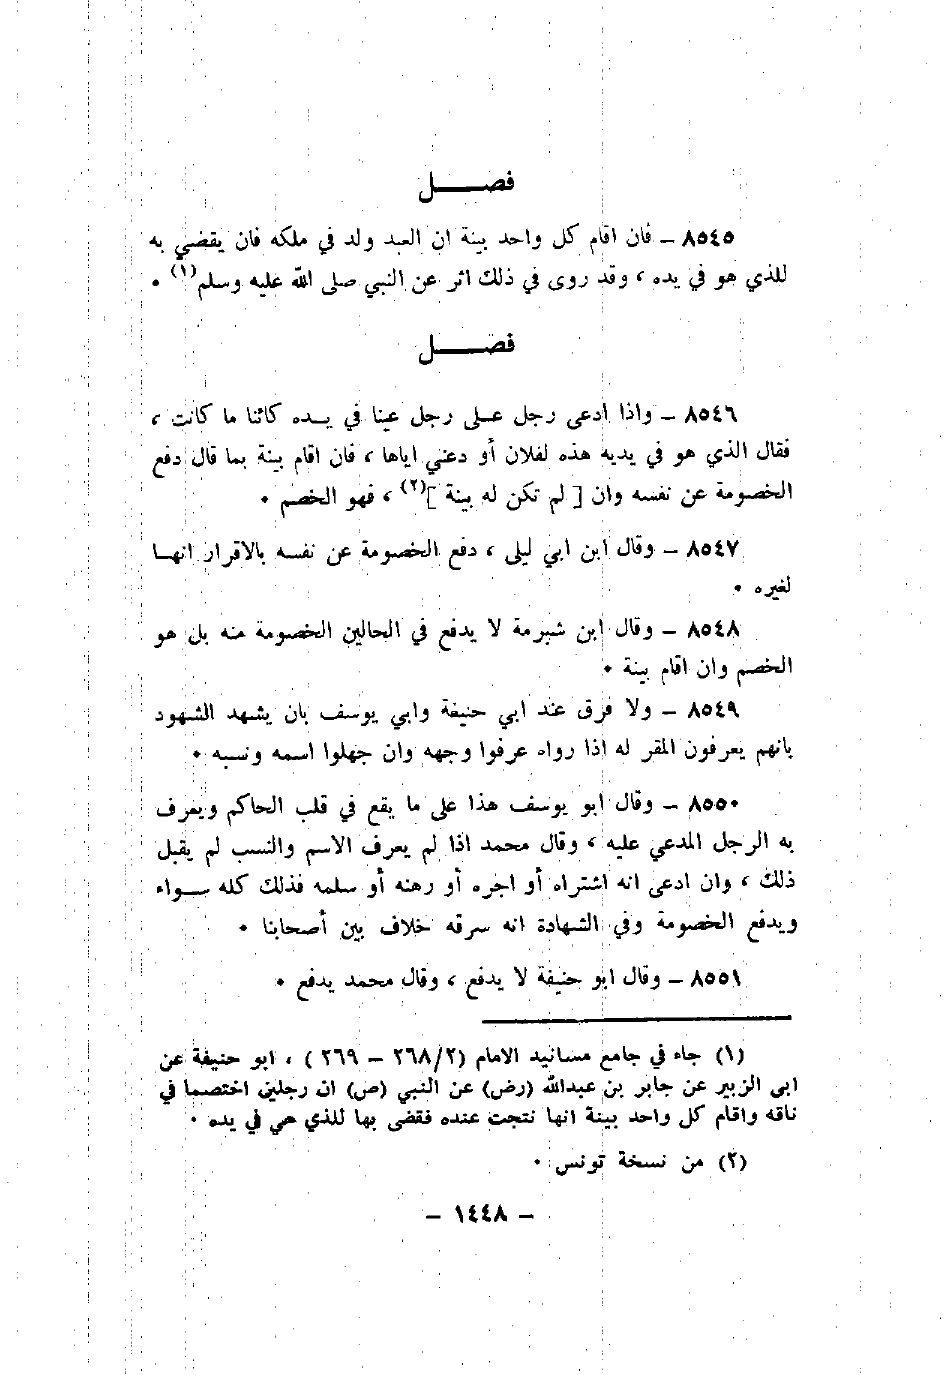 فصـــــل
٨٥٤٥ – فان اقام كل واحد بينة ان العبد ولد في ملكه فان يقضي به
للذي هو في يده ، وقد روى في ذلك اثر عن النبي صلى الله عليه وسلم(١) .
فصـــــل
٨٥٤٦ – واذا ادعى رجل علـى رجل عينا في يـده كائنا ما كانت ،
فقال الذي هو في يديه هذه لفلان أو دعني اياها ، فان اقام بينة بما قال دفع
الخصومة عن نفسه وان [ لم تكن له بينة ](٢) ، فهو الخصم .
٨٥٤٧ – وقال ابن ابي ليلى ، دفع الخصومة عن نفسه بالاقرار انهـا
لغيره .
٨٥٤٨ – وقال ابن شبرمة لا يدفع في الحالين الخصومة منه بل هو
الخصم وان اقام بينة .
٨٥٤٩ – ولا فرق عند ابي حنيفة وابي يوسف بان يشهد الشهود
بانهم يعرفون المقر له اذا رواه عرفوا وجهه وان جهلوا اسمه ونسبه .
٨٥٥٠ – وقال ابو يوسف هذا على ما يقع في قلب الحاكم ويعرف
به الرجل المدعي عليه ، وقال محمد اذا لم يعرف الاسم والنسب لم يقبل
ذلك ، وان ادعى انه اشتراه أو اجره أو رهنه أو سلمه فذلك كله سـواء
ويدفع الخصومة وفي الشهادة انه سرقه خلاف بين أصحابنا .
٨٥٥١ – وقال ابو حنيفة لا يدفع ، وقال محمد يدفع .
(١) جاء في جامع مسانيد الامام (٢٦٨/٢ – ٢٦٩ ) ، ابو حنيفة عن
ابى الزبير عن جابر بن عبدالله (رض) عن النبي (ص) ان رجلين اختصما في
ناقه واقام كل واحد بينة انها نتجت عنده فقضى بها للذي هي في يده .
(٢) من نسخة تونس .
– ١٤٤٨ –